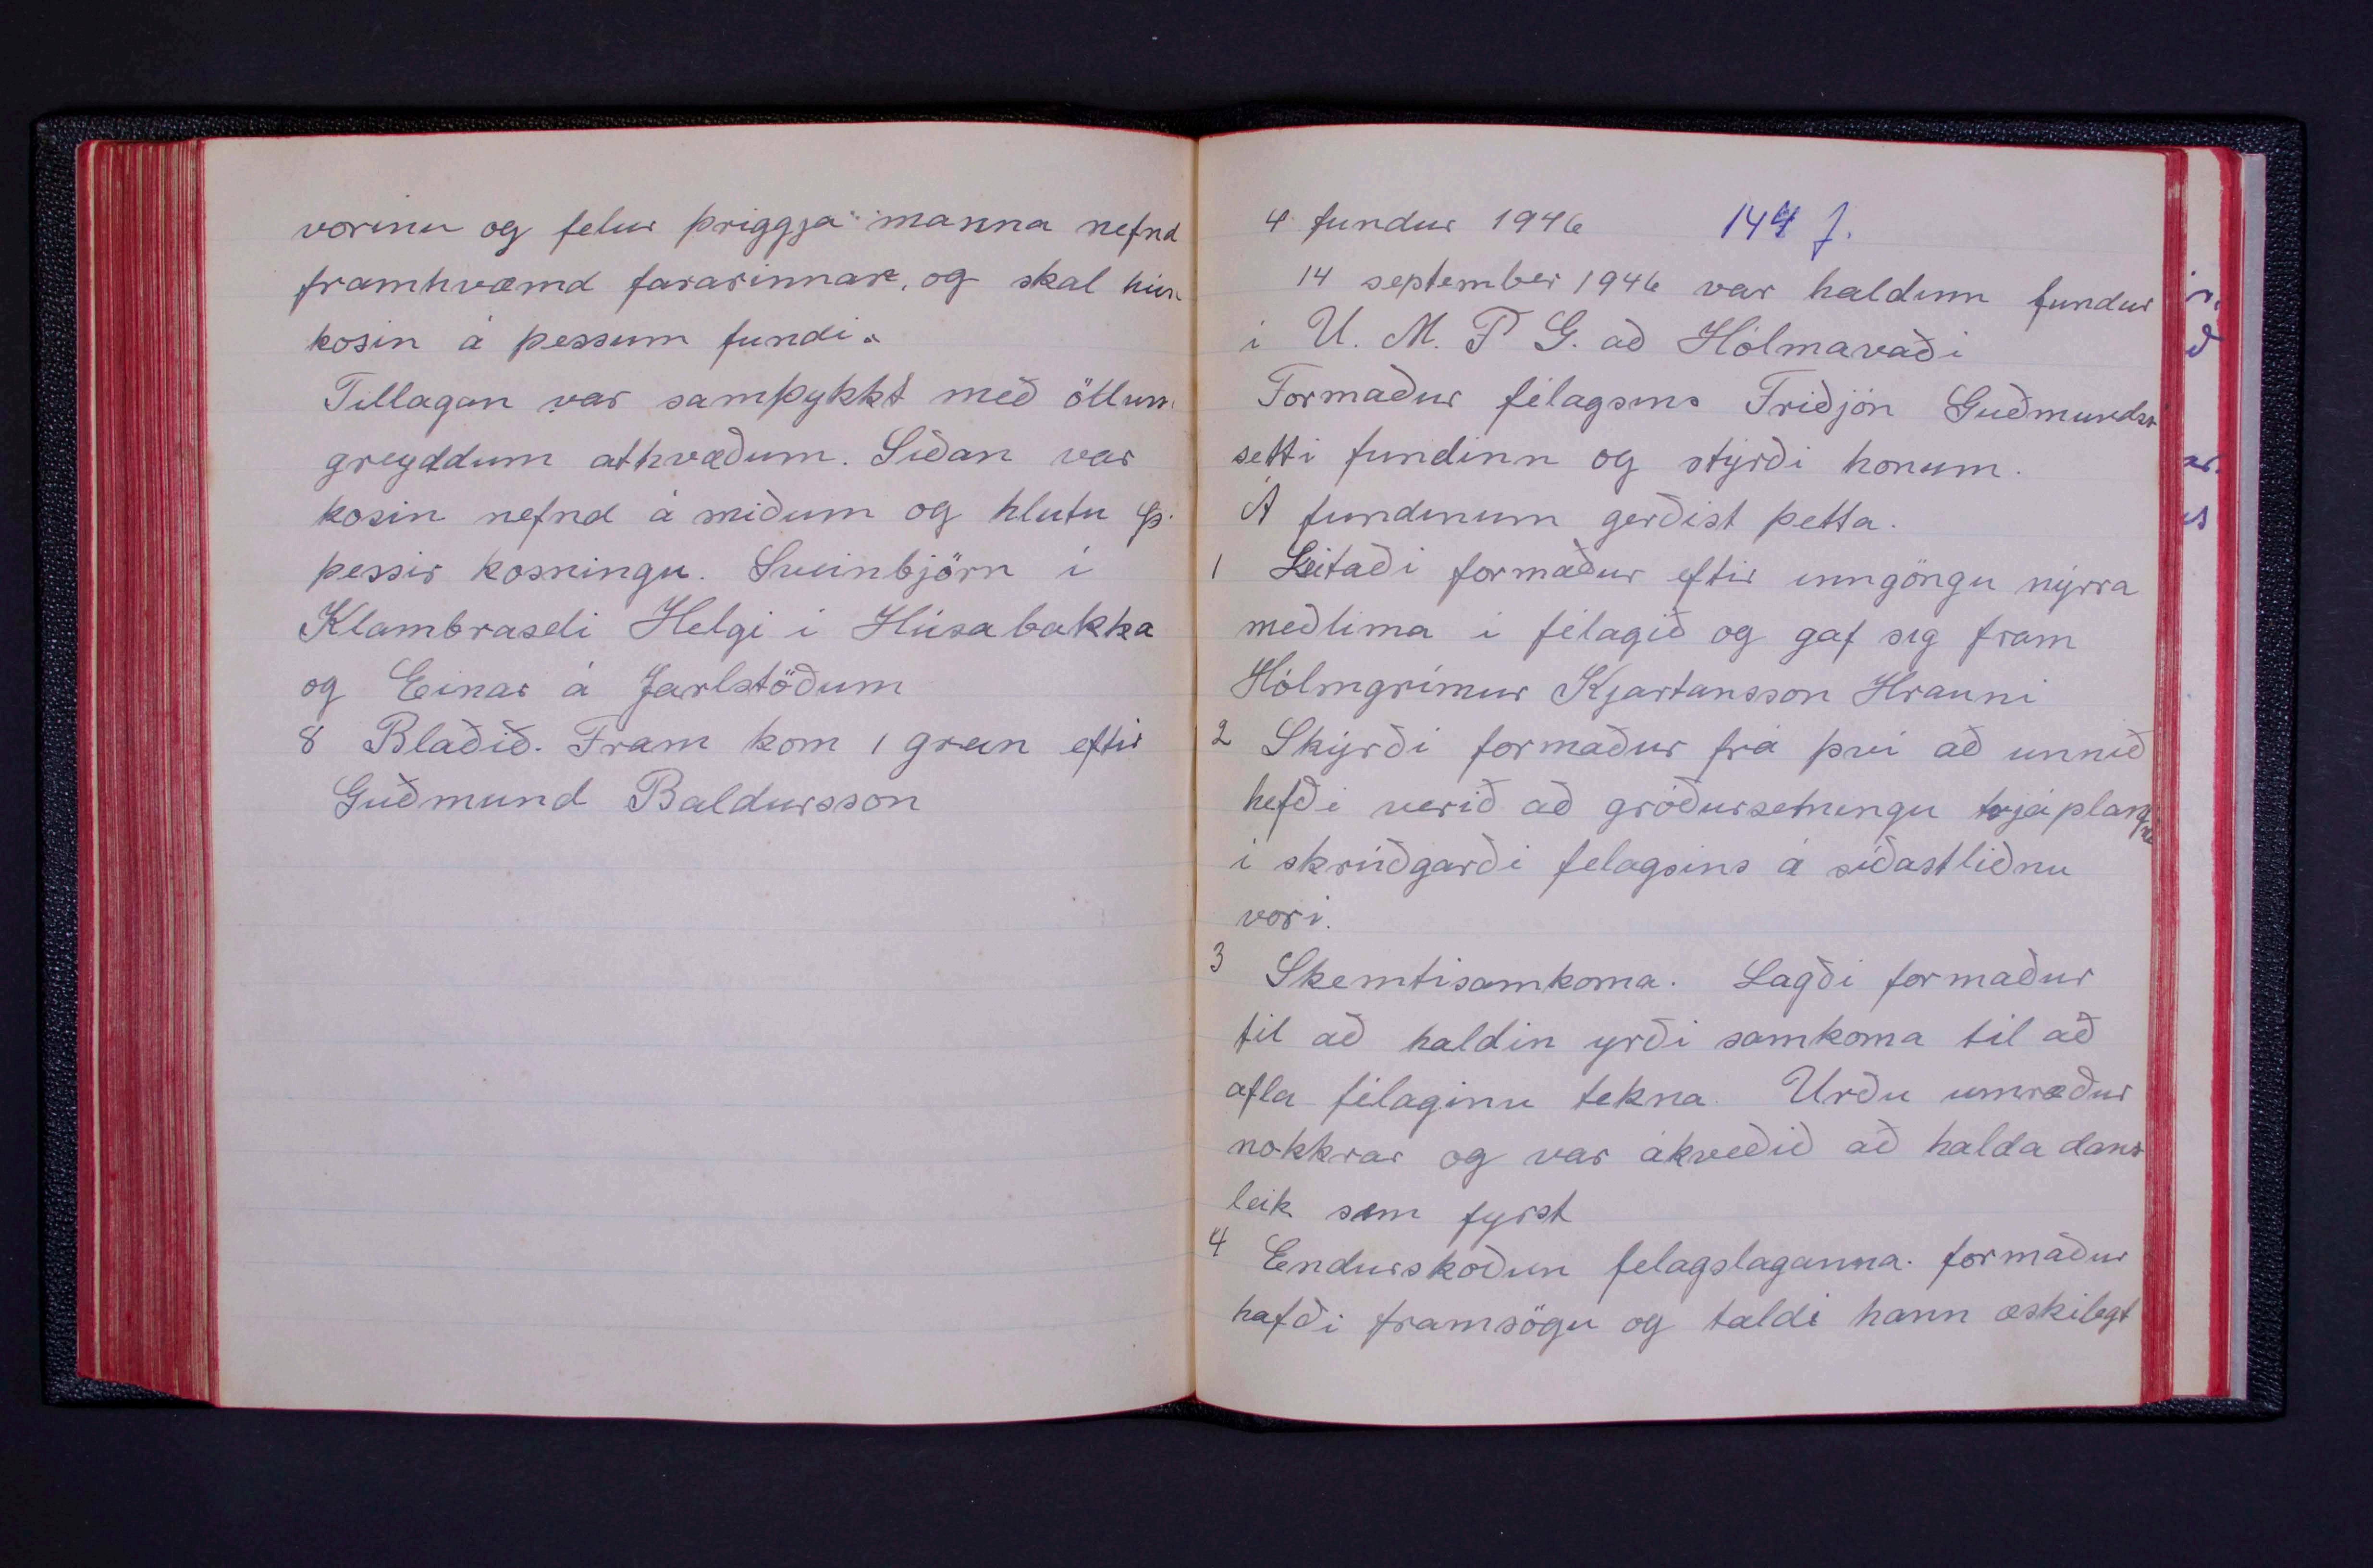 vorinu og felur þriggja manna nefnd
framhvæmd fararinnar, og skal hún
kosin á þessum fundi.
Tillagan var samþykkt með öllum
greyddum athvæðum. Síðan var
kosin nefnd á miðum og hlutu
þessir kosningu. Sveinbjörn í
Klambraseli Helgi í Húsabakka
og Einar á Jarlstöðum
8 Blaðið. Fram kom 1 grein eftir
Guðmund Baldursson
4 fundur 1946 144 f.
14 september 1946 var haldinn fundur
í U. M. F. G. að Hólmavaði
Formaður félagsins Friðjón Guðmundss
setti fundinn og stýrði honum.
Á fundinum gerðist þetta.
1 Leitaði formaður eftir inngöngu nýrra
meðlima í félagið og gaf sig fram
Hólmgrímur Kjartansson Hrauni
2 Skýrði formaður frá því að unnið
hefði verið að gróðursetningu trjáplantna
í skrúðgarði felagsins á síðastliðnu
vori.
3 Skemtisamkoma. Lagði formaður
til að haldin yrði samkoma til að
afla félaginu tekna. Urðu umræður
nokkrar og var ákveðið að halda dans
leik sem fyrst
4 Endurskoðun felagslaganna. formaður
hafði framsögu og taldi hann æskilegt